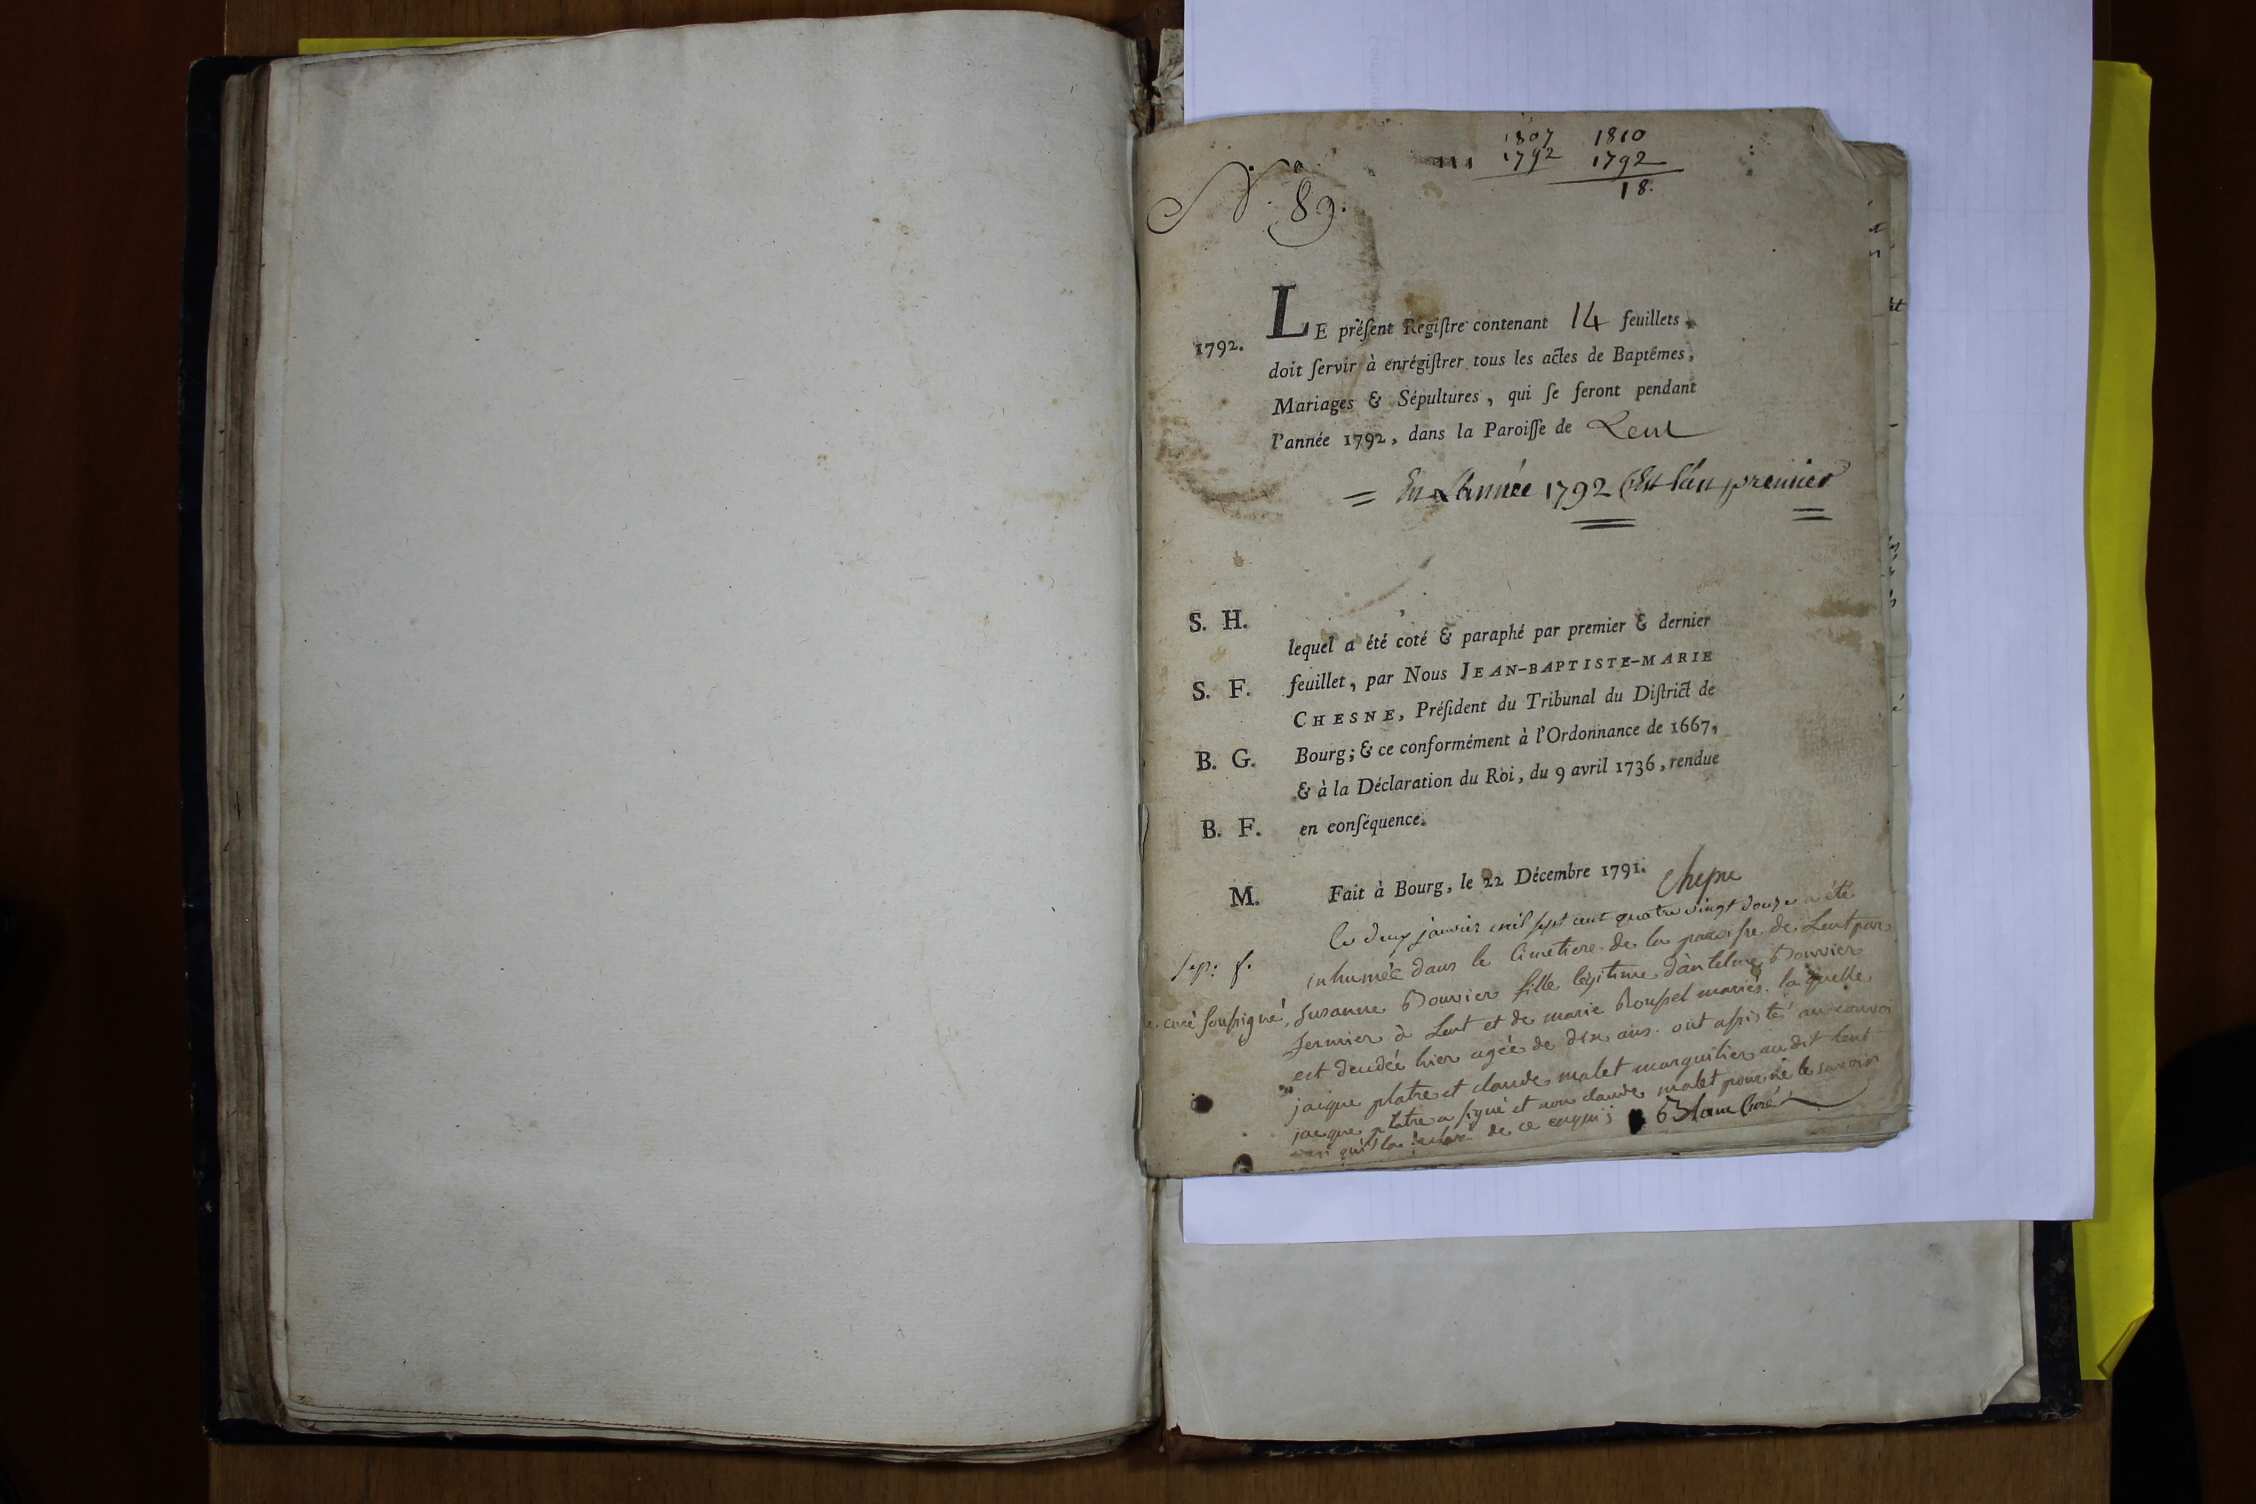 1807 1810
1792 1792
18.
N.° 89.
1792.
LE préſent Regiſtre contenant 14 feuillets,
doit ſervir à enrégiſtrer tous les actes de Baptêmes,
Mariages & Sépultures, qui ſe feront pendant
l'année 1792, dans la Paroiſſe de Lent
= En L'année 1792 Est l'an premier
S. H.
lequel a été coté & paraphé par premier & dernier
S. F. feuillet, par Nous JEAN-BAPTISTE-MARIE
CHESNE, Préſident du Tribunal du Diſtrict de
B. G. Bourg; & ce conformément à l'Ordonnance de 1667,
& à la Déclaration du Roi, du 9 avril 1736, rendue
B. F. en conſéquence.
M. Fait à Bourg, le 22 Décembre 1791. Chesne
Le deux janvier mil sept cent quatre vingt douze a été
sep: f. inhumée dans le Cimetiere de la paroisse de Lent par
le curé soussigné, Susanne Bouvier fille légitime d'antelme Bouvier
fermier à Lent et de marie Roussel mariés. la quelle
est décédée hier agée de dix ans. ont assistés au convoi
jacque platre et claude malet marguilier au dit lent
jacque platre a signé et non claude malet pour ne le savoir
qu'il la de ce enquis Blanc Curé